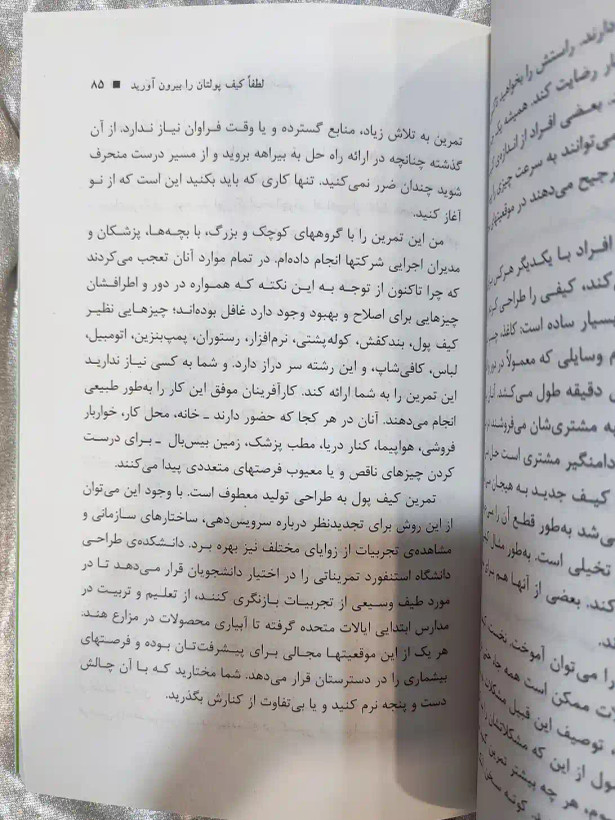 لطفاً کیف پولتان را بیرون آورید ■ ۸۵
تمرین به تلاش زیاد، منابع گسترده و یا وقت فراوان نیاز ندارد. از آن
گذشته چنانچه در ارائه راه حل به بیراهه بروید و از مسیر درست منحرف
شوید چندان ضرر نمی‌کنید. تنها کاری که باید بکنید این است که از نو
آغاز کنید.
من این تمرین را با گروههای کوچک و بزرگ، با بچه‌ها، پزشکان و
مدیران اجرایی شرکتها انجام داده‌ام. در تمام موارد آنان تعجب می‌کردند
که چرا تاکنون از توجه به این نکته که همواره در دور و اطرافشان
چیزهایی برای اصلاح و بهبود وجود دارد غافل بوده‌اند؛ چیزهایی نظیر
کیف پول، بندکفش، کوله‌پشتی، نرم‌افزار، رستوران، پمپ‌بنزین، اتومبیل،
لباس، کافی‌شاپ، و این رشته سر دراز دارد. و شما به کسی نیاز ندارید
این تمرین را به شما ارائه کند. کارآفرینان موفق این کار را به‌طور طبیعی
انجام می‌دهند. آنان در هر کجا که حضور دارند ـ خانه، محل کار، خواربار
فروشی، هواپیما، کنار دریا، مطب پزشک، زمین بیس‌بال ـ برای درست
کردن چیزهای ناقص و یا معیوب فرصتهای متعددی پیدا می‌کنند.
تمرین کیف پول به طراحی تولید معطوف است. با وجود این می‌توان
از این روش برای تجدیدنظر درباره سرویس‌دهی، ساختارهای سازمانی و
مشاهده‌ی تجربیات از زوایای مختلف نیز بهره برد. دانشکده‌ی طراحی
دانشگاه استنفورد تمریناتی را در اختیار دانشجویان قرار می‌دهد تا در
مورد طیف وسیعی از تجربیات بازنگری کنند، از تعلیم و تربیت در
مدارس ابتدایی ایالات متحده گرفته تا آبیاری محصولات در مزارع هند.
هر یک از این موقعیتها مجالی برای پیشرفت‌تان بوده و فرصتهای
بیشماری را در دسترستان قرار می‌دهد. شما مختارید که با آن چالش
دست و پنجه نرم کنید و یا بی‌تفاوت از کنارش بگذرید.
دارند. راستش را بخواهید
رضایت کند. همیشه یک
بعضی افراد از
می‌توانند به سرعت چیزی را
ترجیح می‌دهند در
افراد با یکدیگر هر کس
کیفی را طراحی
بسیار ساده است: کاغذ،
وسایلی که معمولاً در
دقیقه طول می‌کشد
به مشتری‌شان می‌فروشند
دامنگیر مشتری است
کیف جدید به هیجان
می‌شد به‌طور قطع آن را
تخیلی است. به‌طور مثال
کند. بعضی از آنها هم برای
را می‌توان آموخت. نخست
ممکن است همه جا،
توصیف این قبیل
از این که مشکلاتشان را
هر چه بیشتر تمرین